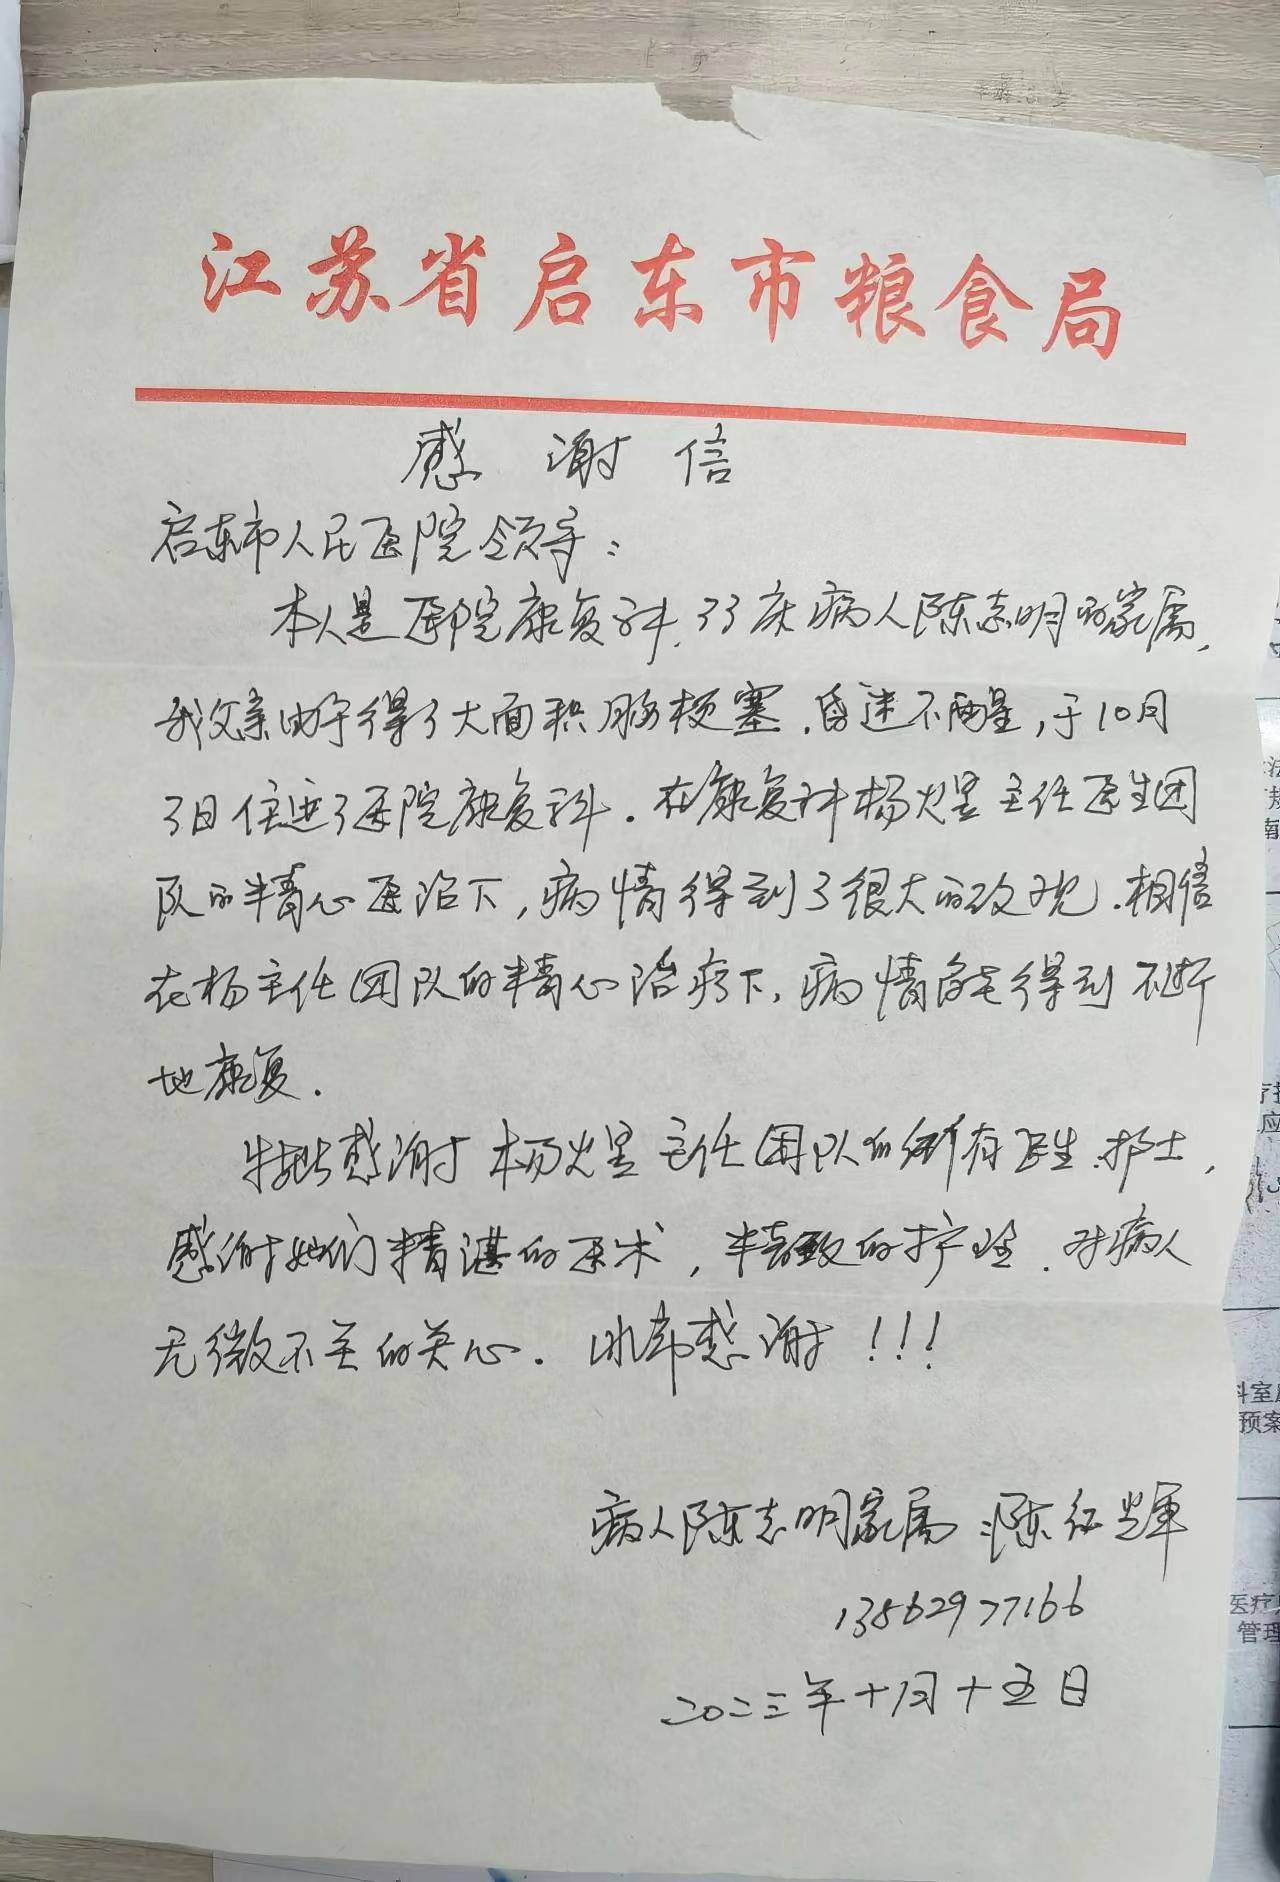 江苏省启东市粮食局
感谢信
启东市人民医院领导：
本人是医院康复科，33床病人陈志明的家属，
我父亲由于得了大面积脑梗塞，昏迷不醒，于10月
3日住进了医院康复科。在康复科杨火星主任医生团
队的精心医治下，病情得到了很大的改观，相信
在杨主任团队的精心治疗下，病情能得到不断
地康复。
特此感谢杨火星主任团队的所有医生、护士，
感谢她们精湛的医术，精致的护理，对病人
无微不至的关心。非常感谢！！！
病人陈志明家属：陈红辉
13862977166
二〇二三年十月十五日
科室
预案
医疗
管理